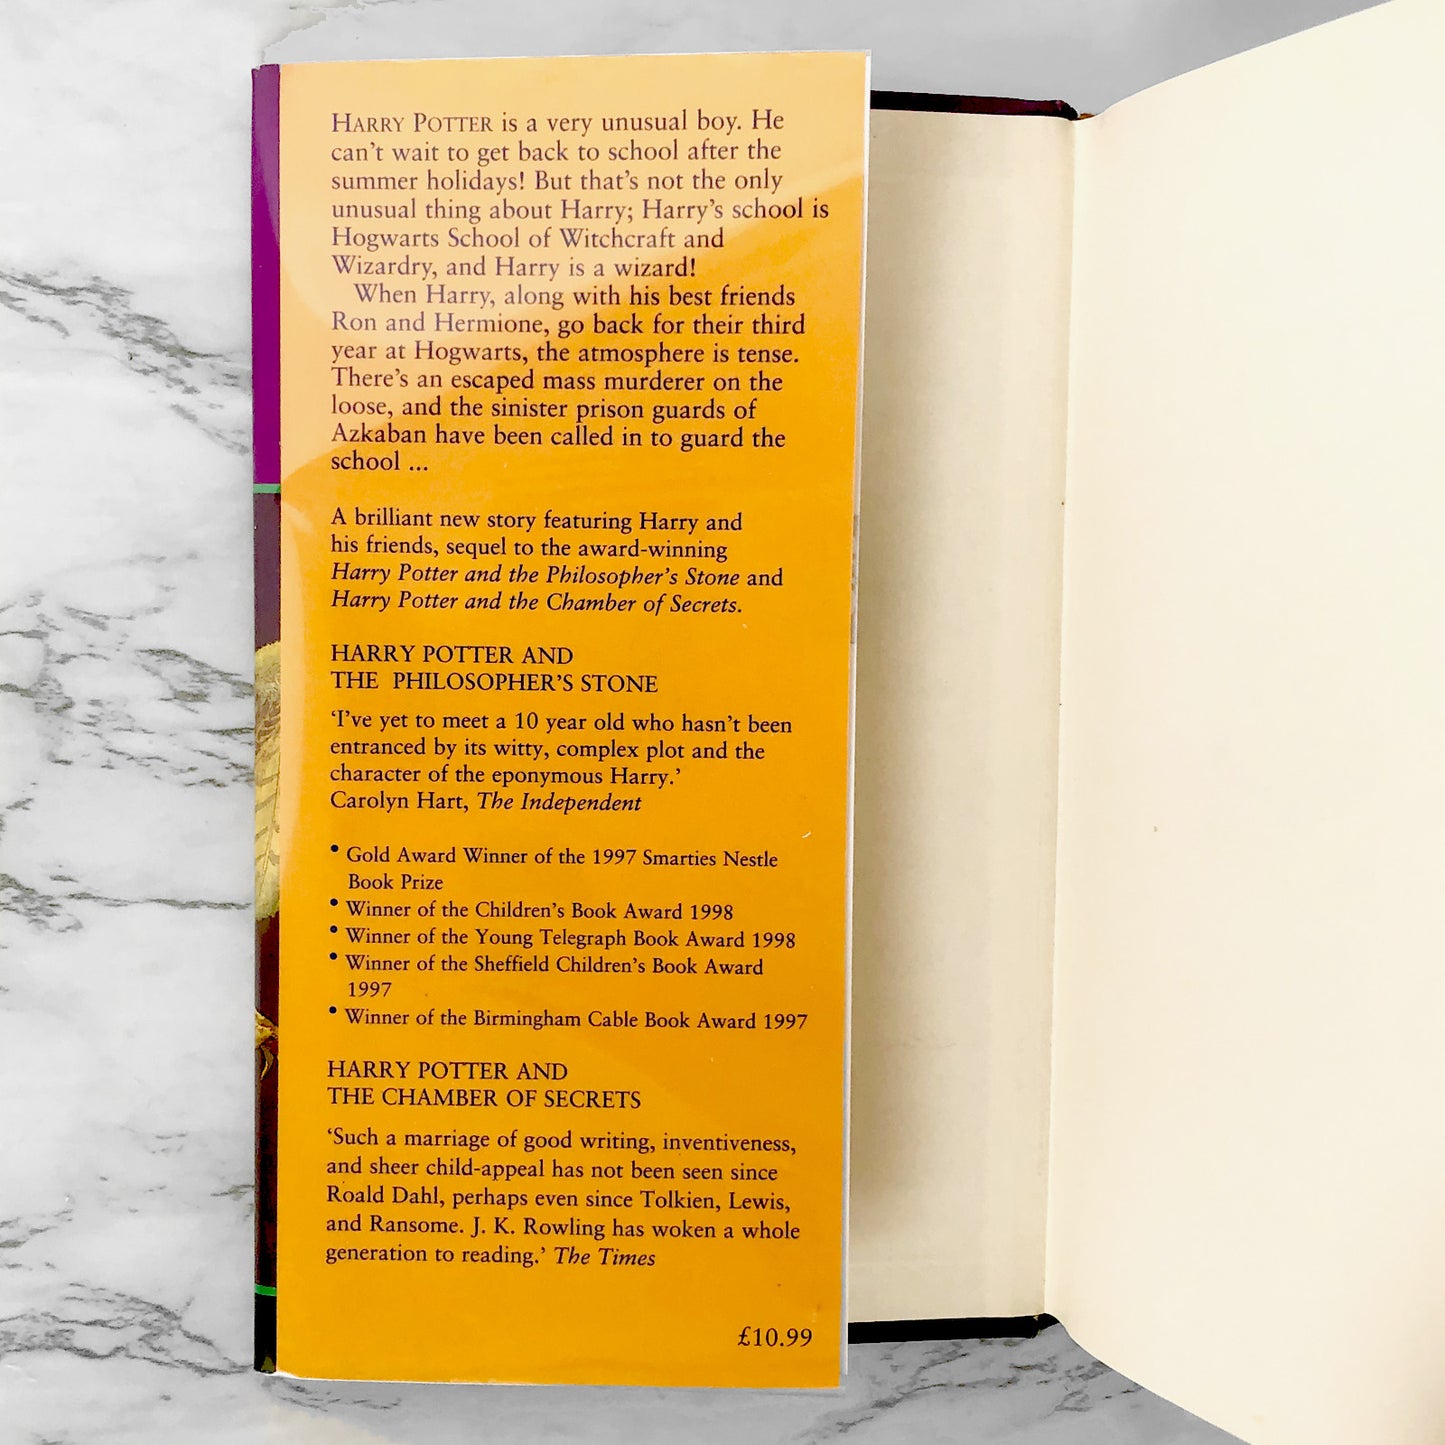 HARRY POTTER is a very unusual boy. He
can't wait to get back to school after the
summer holidays! But that's not the only
unusual thing about Harry; Harry's school is
Hogwarts School of Witchcraft and
Wizardry, and Harry is a wizard!
When Harry, along with his best friends
Ron and Hermione, go back for their third
year at Hogwarts, the atmosphere is tense.
There's an escaped mass murderer on the
loose, and the sinister prison guards of
Azkaban have been called in to guard the
school ...
A brilliant new story featuring Harry and
his friends, sequel to the award-winning
Harry Potter and the Philosopher's Stone and
Harry Potter and the Chamber of Secrets.
HARRY POTTER AND
THE PHILOSOPHER'S STONE
'I've yet to meet a 10 year old who hasn't been
entranced by its witty, complex plot and the
character of the eponymous Harry.'
Carolyn Hart, The Independent
• Gold Award Winner of the 1997 Smarties Nestle
Book Prize
• Winner of the Children's Book Award 1998
• Winner of the Young Telegraph Book Award 1998
• Winner of the Sheffield Children's Book Award
1997
• Winner of the Birmingham Cable Book Award 1997
HARRY POTTER AND
THE CHAMBER OF SECRETS
'Such a marriage of good writing, inventiveness,
and sheer child-appeal has not been seen since
Roald Dahl, perhaps even since Tolkien, Lewis,
and Ransome. J. K. Rowling has woken a whole
generation to reading.' The Times
£10.99